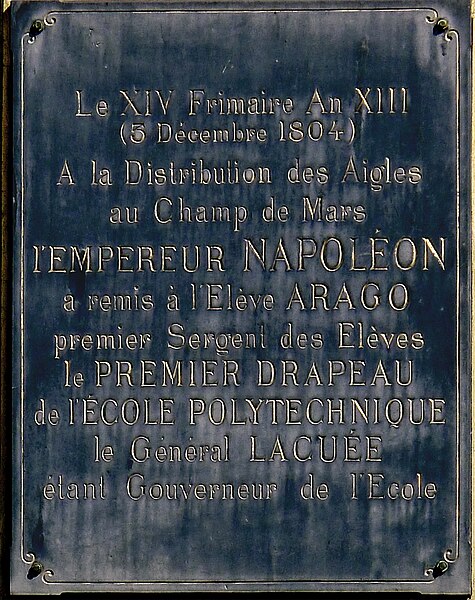 Le XIV Frimaire An XIII
(5 Décembre 1804)
A la Distribution des Aigles
au Champ de Mars
l'EMPEREUR NAPOLÉON
à remis à l'Elève ARAGO
premier Sergent des Elèves
le PREMIER DRAPEAU
de l'ÉCOLE POLYTECHNIQUE
le Général LACUÉE
étant Gouverneur de l'Ecole